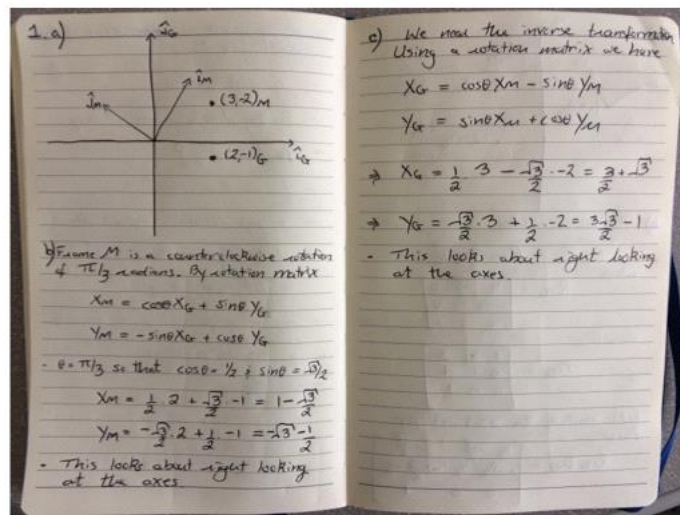 1. a)
ĵG
îM
ĵM
• (3,-2)M
• (2,-1)G
îG
b) Frame M is a counterclockwise rotation
of π/3 radians. By rotation matrix
XM = cosθ XG + sinθ YG
YM = -sinθ XG + cosθ YG
- θ = π/3 so that cosθ = 1/2 ; sinθ = √3/2
XM = 1/2 · 2 + √3/2 · -1 = 1 - √3/2
YM = -√3/2 · 2 + 1/2 · -1 = -√3 - 1/2
- This looks about right looking
at the axes
c) We need the inverse transformation
Using a rotation matrix we have
XG = cosθ XM - sinθ YM
YG = sinθ XM + cosθ YM
⇒ XG = 1/2 · 3 - √3/2 · -2 = 3/2 + √3
⇒ YG = √3/2 · 3 + 1/2 · -2 = 3√3/2 - 1
- This looks about right looking
at the axes.